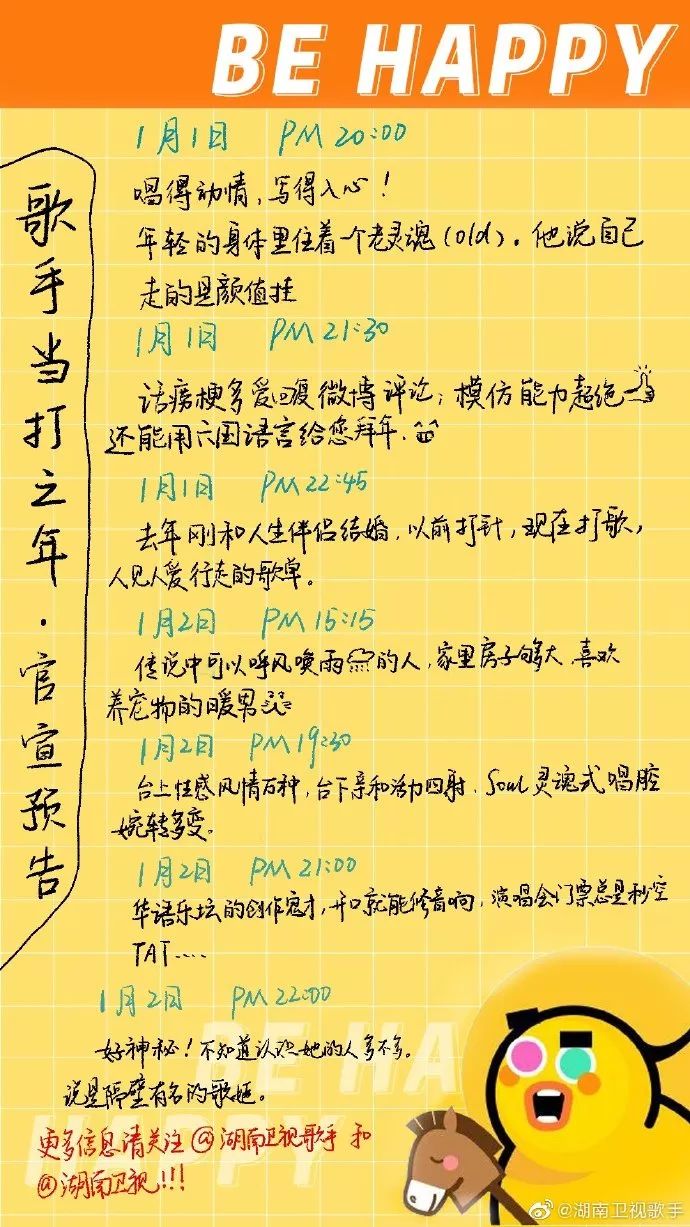 BE HAPPY
歌手当打之年·官宣预告
1月1日 PM 20:00
唱得动情，写得入心！
年轻的身体里住着一个老灵魂(old)。他说自己
走的是颜值挂
1月1日 PM 21:30
话痨梗多爱回复微博评论；模仿能力超绝
还能用六国语言给您拜年.
1月1日 PM 22:45
去年刚和人生伴侣结婚，以前打针，现在打歌，
人见人爱行走的歌单。
1月2日 PM 15:15
传说中可以呼风唤雨的人，家里房子够大.喜欢
养宠物的暖男
1月2日 PM 19:30
台上性感风情万种，台下亲和活力四射.Soul灵魂式唱腔
婉转多变。
1月2日 PM 21:00
华语乐坛的创作鬼才，开口就能修音响，演唱会门票总是秒空
TAT....
1月2日 PM 22:00
好神秘！不知道认识她的人多不多。
说是隔壁有名的歌姬。
BE HA
HAPPY
更多信息请关注@湖南卫视歌手 和
@湖南卫视!!!
@湖南卫视歌手